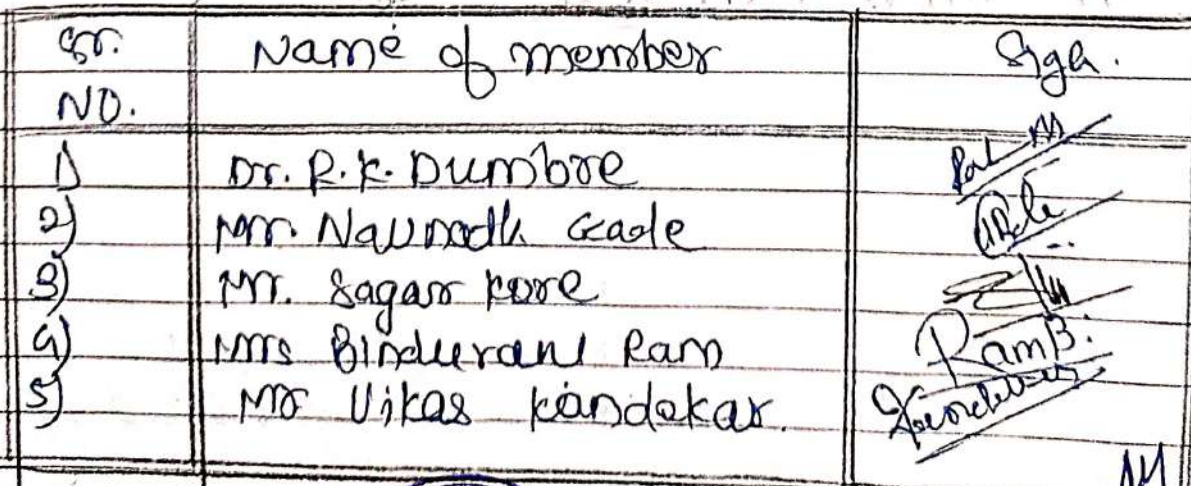 Sr. Name of member Sign.
NO.
1) Dr. R.K. Dumbre
2) Mr. Navnath Gade
3) Mr. Sagar Kore
4) Mrs Bindurani Ram RamB.
5) Mr Vikas Kandekar.